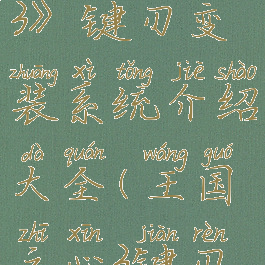 》键刃变
zhuāng xì tǒng jiè shào
装系统介绍
dà quán wáng guó
大全(王国
zhī xīn jiàn rèn
之心键刃